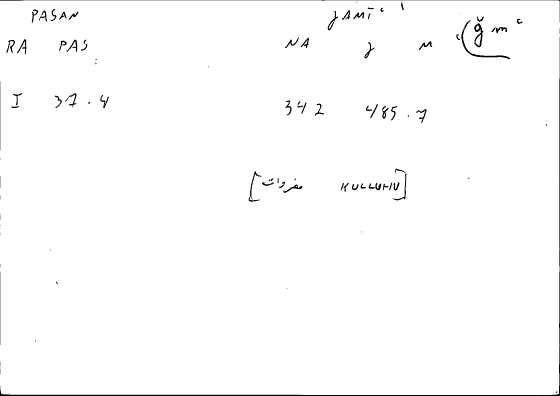 PASAN JAMĪʿ (ǧmʿ
RA PAS NA J M
I 37.4 342 485.7
[مفردات KULLUHU]